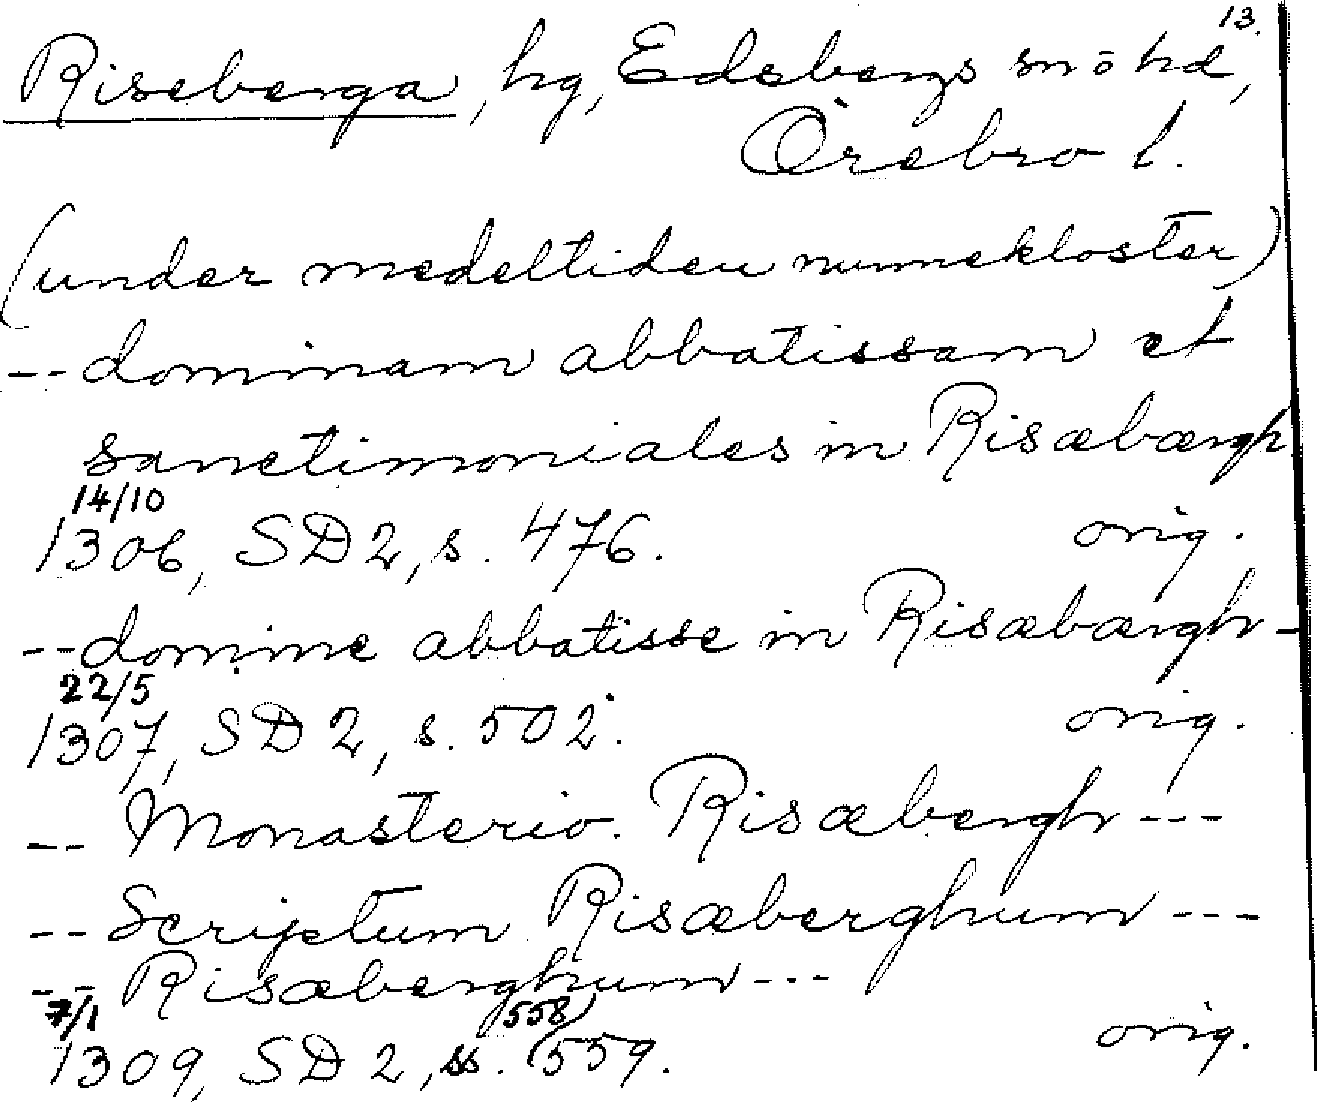 13.
Riseberga, hg, Edsbergs sn o hd,
Örebro l.
(under medeltiden nunnekloster)
-- dominam abbatissam et
sanctimoniales in Risæbærgh
14/10
1306, SD 2, s. 476. orig.
-- domine abbatisse in Risæbærgh -
22/5
1307, SD 2, s. 502. orig.
-- Monasterio. Risæbergh ---
-- Scriptum Risæberghum ---
-- Risæberghum ---
7/1 558)
1309, SD 2, ss. (559. orig.